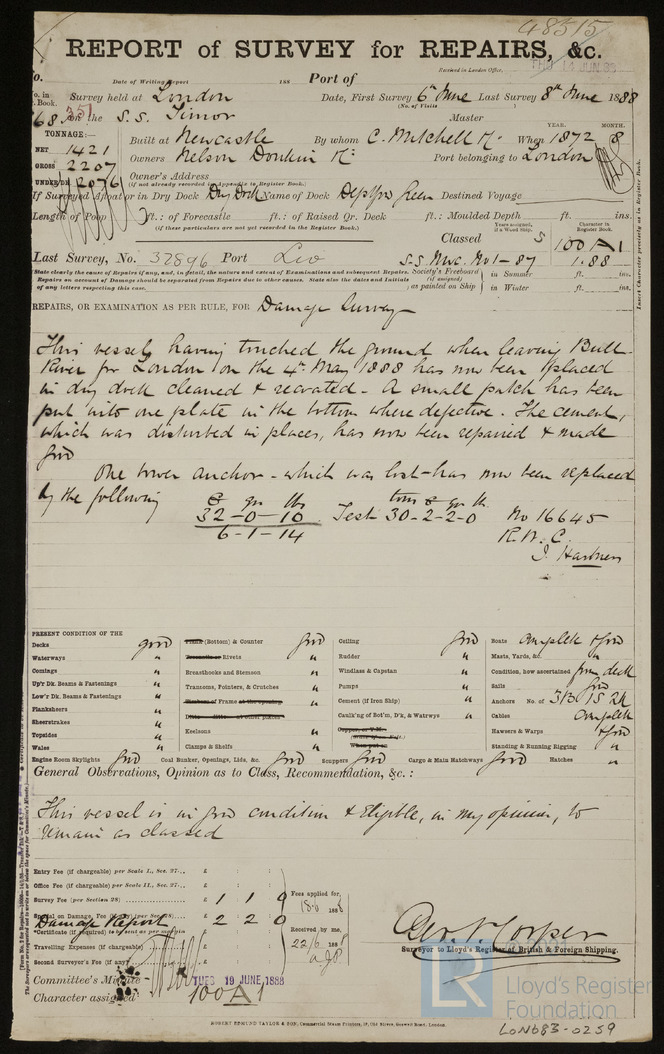 48515
REPORT of SURVEY for REPAIRS, &c.
Received in London Office,
THU 14 JUN 88
Date of Writing Report 188 Port of
Survey held at London Date, First Survey 6th June Last Survey 8th June 1888
(No. of Visits
Book. 351
68 on the S.S. Timor Master
TONNAGE:— YEAR. MONTH.
Built at Newcastle By whom C. Mitchell & Co When 1872 8
NET 1421
GROSS 2207 Owners Nelson Donkin & Co Port belonging to London
Owners' Address
UNDER DK 2076 (if not already recorded in Appendix to Register Book.)
If Surveyed Afloat or in Dry Dock Dry Dock Name of Dock Deptford Green Destined Voyage
Length of Poop ft.: of Forecastle ft.: of Raised Qr. Deck ft.: Moulded Depth ft. ins.
(if these particulars are not yet recorded in the Register Book.)
Years assigned, if a Wood Ship. Character in Register Book.
Classed 100 A 1
Last Survey, No. 32896 Port S.S. No1-87 1.88
State clearly the cause of Repairs if any, and, in detail, the nature and extent of Examinations and subsequent Repairs. Society's Freeboard in Summer ft. ins.
Repairs on account of Damage should be separated from Repairs due to other causes. State also the dates and Initials
of any letters respecting this case. as painted on Ship in Winter ft. ins.
Insert Character precisely as in Register Book.
REPAIRS, OR EXAMINATION AS PER RULE, FOR Damage Survey
This vessel having touched the ground when leaving Bull
River for London on the 4th May 1888 has now been placed
in dry dock cleaned & recoated - A small patch has been
put into one plate in the bottom where defective. The cement,
which was disturbed in places, has now been repaired & made
good
One bower anchor - which was lost - has now been replaced
by the following
c qrs lbs tons c qr lb
32-0-10 Test 30-2-2-0 No 16645
6-1-14 R.W.C.
PRESENT CONDITION OF THE
Decks good
Waterways "
Comings "
Up'r Dk. Beams & Fastenings "
Low'r Dk. Beams & Fastenings "
Planksheers "
Sheerstrakes "
Topsides "
Wales "
Plank (Bottom) & Counter good
Treenails or Rivets "
Breasthooks and Stemson "
Transoms, Pointers, & Crutches "
Timbers of Frame at the opening
Ditto ditto at other places
Keelsons "
Clamps & Shelfs "
Ceiling good
Rudder "
Windlass & Capstan "
Pumps "
Cement (if Iron Ship) "
Caulk'ng of Bot'm, D'k, & Watrwys "
Copper, or Y.M.
When put on
Boats complete & good
Masts, Yards, &c. "
Condition, how ascertained from deck
Sails good
Anchors No. of 3/B 1S 2K
Cables complete
Hawsers & Warps & good
Standing & Running Rigging "
Engine Room Skylights good Coal Bunker, Openings, Lids, &c. good Scuppers good Cargo & Main Hatchways good Hatches "
General Observations, Opinion as to Class, Recommendation, &c.:
This vessel is in good condition & Eligible, in my opinion, to
remain as classed
Entry Fee (if chargeable) per Scale I., Sec. 27... £ : :
Office Fee (if chargeable) per Scale II., Sec. 27... £ : :
Survey Fee (per Section 28) £ 1 : 1 : 0
Special on Damage, Fee (if any) (per Sec. 28) £ 2 : 2 : 0
Damage Report
*Certificate (if required) to be sent as per margin
Travelling Expenses (if chargeable) £ : :
Second Surveyor's Fee (if any) £ : :
Fees applied for,
18.6 1888
Received by me,
22/6 188
Geo. N. Cooper
Surveyor to Lloyd's Register of British & Foreign Shipping.
Committee's Minute TUES 19 JUNE 1888
Character assigned 100 A 1
LR Lloyd's Register
Foundation
ROBERT EDMUND TAYLOR & SON, Commercial Steam Printers, 19, Old Street, Goswell Road, London.
LON683-0259